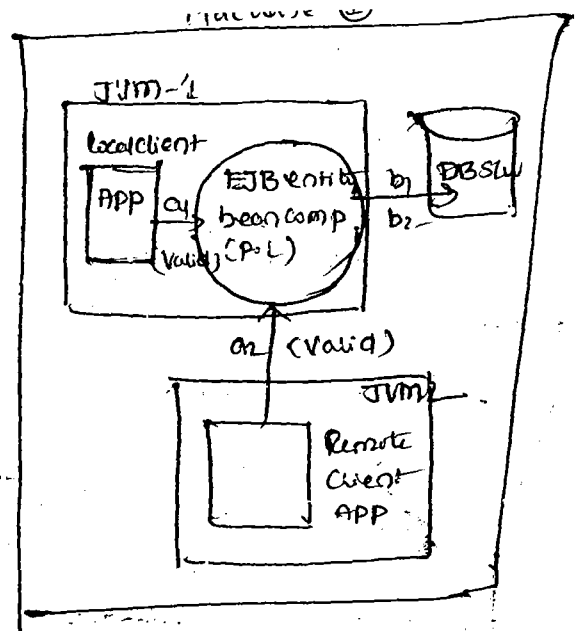 JVM-1
local client
APP
a1
(Valid)
EJB entity
bean comp
(P.L)
b1
b2
DBS/w
a2 (Valid)
JVM
Remote
Client
APP